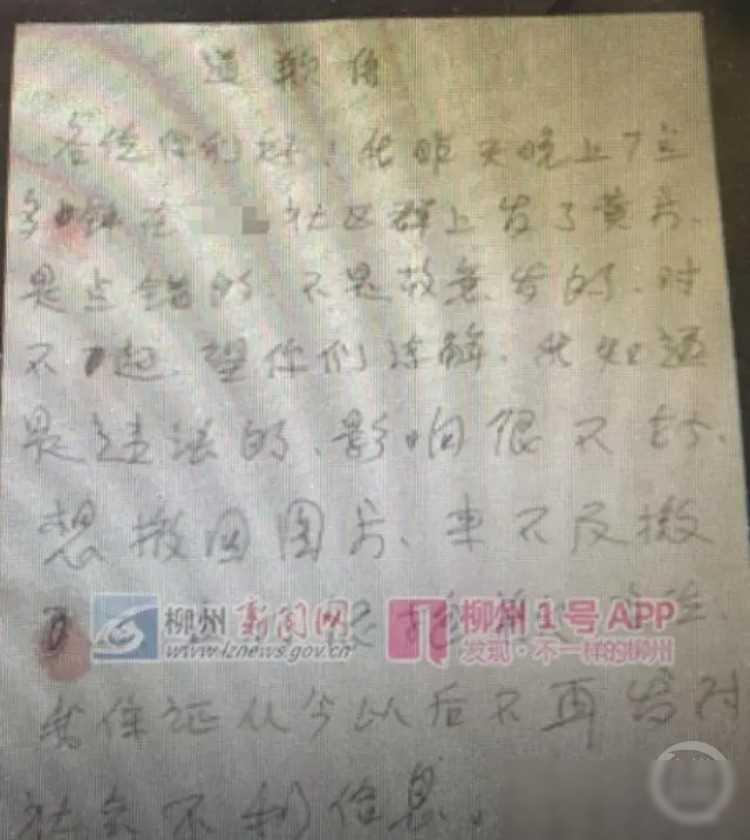 道歉信
各位你们好！我昨天晚上7点
多钟在 社区群上发了黄片、
是点错的、不是故意发的、对
不起、望你们谅解、我知道
是违法的、影响很不好、
想撤回图片、来不及撤
柳州新闻网 柳州1号APP
www.lznews.gov.cn 发现·不一样的柳州
我保证从今以后不再发对
社会不利信息。